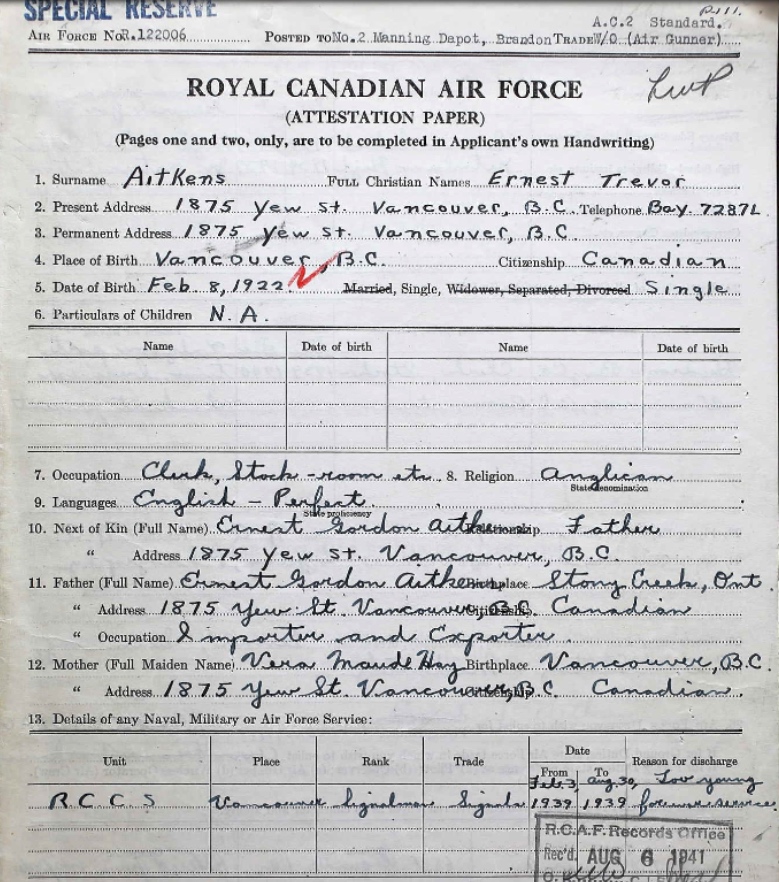 SPECIAL RESERVE
A.C.2 Standard.
AIR FORCE No R.122006 POSTED TO No.2 Manning Depot, Brandon TRADE W/O (Air Gunner)
ROYAL CANADIAN AIR FORCE
(ATTESTATION PAPER)
(Pages one and two, only, are to be completed in Applicant's own Handwriting)
1. Surname Aitkens FULL Christian Names Ernest Trevor
2. Present Address 1875 Yew St. Vancouver, B.C. Telephone Bay. 7287L
3. Permanent Address 1875 Yew St. Vancouver, B.C.
4. Place of Birth Vancouver, B.C. Citizenship Canadian
5. Date of Birth Feb. 8, 1922 Married, Single, Widower, Separated, Divorced Single
6. Particulars of Children N.A.
Name Date of birth Name Date of birth
7. Occupation Clerk, Stock-room etc. 8. Religion Anglican
State denomination
9. Languages English - Perfect
State proficiency
10. Next of Kin (Full Name) Ernest Gordon Aitkens Relationship Father
" Address 1875 Yew St. Vancouver, B.C.
11. Father (Full Name) Ernest Gordon Aitkens Birthplace Stony Creek, Ont.
" Address 1875 Yew St. Vancouver, B.C. Citizenship Canadian
" Occupation Importer and Exporter.
12. Mother (Full Maiden Name) Vera Maude Hay Birthplace Vancouver, B.C.
" Address 1875 Yew St. Vancouver, B.C. Citizenship Canadian
13. Details of any Naval, Military or Air Force Service:
Unit Place Rank Trade Date From To Reason for discharge
R.C.C.S Vancouver Signalman Signals Feb. 3, 1939 Aug. 30, 1939 Too young for war service
R.C.A.F. Records Office
Rec'd. AUG 6 1941